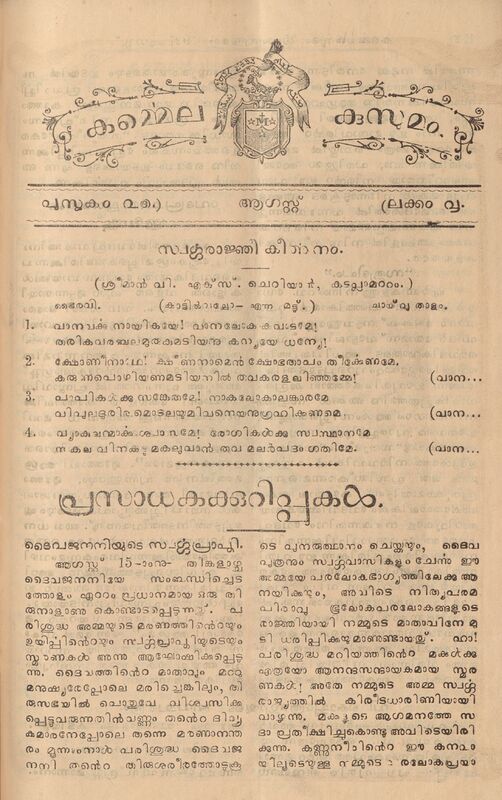 കർമ്മെല കുസുമം.
പുസ്തകം ൨൩.) ആഗസ്റ്റ് (ലക്കം ൮.
സ്വർഗ്ഗരാജ്ഞി കീർത്തനം.
(ശ്രീമാൻ വി. എക്സ്. ചെറിയാൻ, കടപ്ലാമറ്റം.)
ഭൈരവി. (കാട്ടിൽവച്ചോ— എന്ന മട്ട്.) ചായ്‌വു താളം.
1. വാനവർക്കു നായികയേ! വാനലോകകവാടമേ!
തരികവരഞ്ചലമുതകമടിയനു കന്യയേ ധന്യേ!
2. ക്ഷോണീനാഥേ! ക്ഷീണനാമെൻ ക്ഷോഭതാപം തീർക്കേണമേ,
കരുണപൊഴിയണമടിയനിൽ തവകരളലിഞ്ഞമ്മേ! (വാന...
3. പാപികൾക്കു സങ്കേതമേ! നാകലോകാലങ്കാരമേ
(വാന...
4. രോഗികൾക്കു സ്വസ്ഥാനമേ
മകലുവാൻ തവ മലർപദം ഗതിമേ. (വാന...
പ്രസാധകക്കുറിപ്പുകൾ.
ദൈവജനനിയുടെ സ്വർഗ്ഗപ്രാപ്തി.
ആഗസ്റ്റ് 15-ാംനു- തിങ്കളാഴ്ച
ദൈവജനനിയേ സംബന്ധിച്ചെട
ത്തോളം ഏററം പ്രധാനമായ ഒരു തി
രുനാളാണു കൊണ്ടാടപ്പെടുന്നത്. പ
രിശുദ്ധ അമ്മയുടെ മരണത്തിൻെറയും
ഉയിപ്പിൻെറയും സ്വർഗ്ഗപ്രാപ്തിയുടെയും
സ്മരണകൾ അന്നു ആഘോഷിക്കപ്പെടു
ന്നു. ദൈവത്തിൻെറ മാതാവും മററു
മനുഷ്യരേപ്പോലെ മരിച്ചെങ്കിലും, തി
രുസഭയിൽ പൊതുവേ വിശ്വസിക്ക
പ്പെട്ടുവരുന്നതിൻവണ്ണം തൻെറ ദിവ്യ
കുമാരനേപ്പോലെ തന്നെ മരണാനന്ത
രം മൂന്നാംനാൾ പരിശുദ്ധ ദൈവജ
നനി തൻെറ തിരുശരീരത്തോടുകൂ
ടെ പുനരുത്ഥാനം ചെയ്യുന്നതും, ദൈവ
പുത്രനും സ്വർഗ്ഗവാസികളും ചേർന്നു ഈ
അമ്മയേ പരലോകഭാഗ്യത്തിലേക്കു ആ
നയിക്കയും, അവിടെ നിത്യപരമ
പിതാവു ഭൂലോകപരലോകങ്ങളുടെ
രാജ്ഞിയായി നമ്മുടെ മാതാവിനേ മു
ടി ധരിപ്പിക്കയുമാണുണ്ടായത്. ഹാ!
പരിശുദ്ധ മറിയത്തിൻെറ മക്കൾക്കു
എത്രയോ ആനന്ദസന്ദായകമായ സ്മര
ണകൾ! അതേ നമ്മുടെ അമ്മ സ്വർഗ്ഗ
രാജ്യത്തിൽ കിരീടധാരിണിയായി
വാഴുന്നു. മക്കളുടെ ആഗമനത്തേ സ
ദാ പ്രതീക്ഷിച്ചുകൊണ്ടു അവിടെയിരി
ക്കുന്നു. കണ്ണുനീരിൻെറ ഈ കനവാ
യിലൂടെയുള്ള നമ്മുടെ പരലോകപ്രയാ